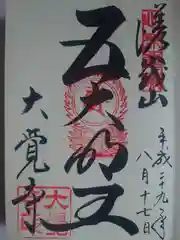 嵯峨山
平成二十九年
八月十七日
五大明王
大覺寺